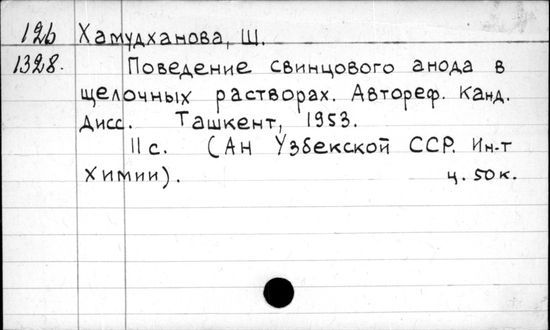 126 Хамудханова, Ш.
1328. Поведение свинцового анода в
щелочных растворах. Автореф. канд.
дисс. Ташкент, 1953.
11 с. (АН Узбекской ССР. Ин-т
химии). ц. 50 к.